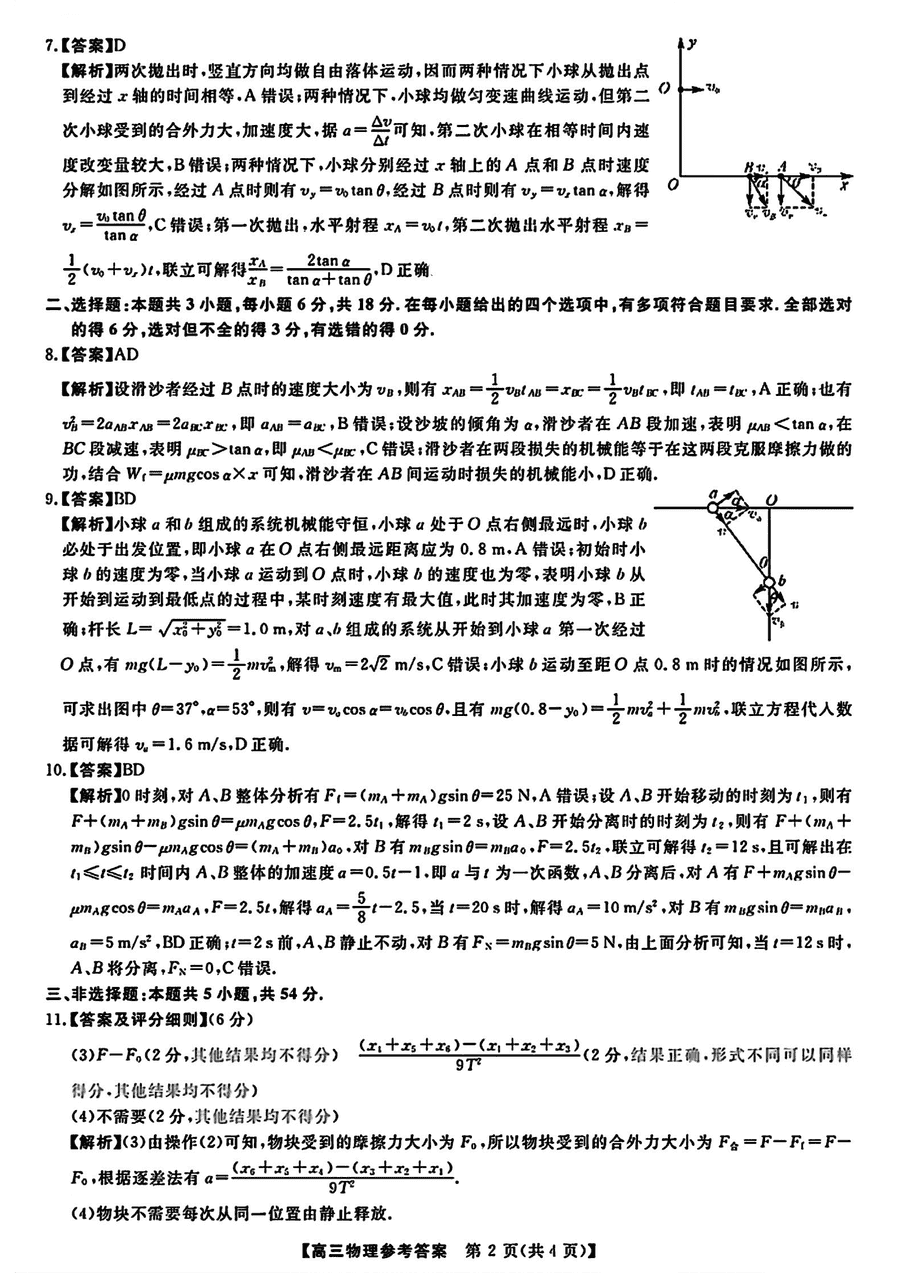 7.【答案】D
【解析】两次抛出时,竖直方向均做自由落体运动,因而两种情况下小球从抛出点
到经过 x 轴的时间相等,A 错误;两种情况下,小球均做匀变速曲线运动,但第二
次小球受到的合外力大,加速度大,据 a=Δv/Δt可知,第二次小球在相等时间内速
度改变量较大,B 错误;两种情况下,小球分别经过 x 轴上的 A 点和 B 点时速度
分解如图所示,经过 A 点时则有 vy=v0 tan θ,经过 B 点时则有 vy=vx tan α,解得
vx=v0 tan θ/tan α,C 错误;第一次抛出,水平射程 xA=v0t,第二次抛出水平射程 xB=
1/2(v0+vx)t,联立可解得xA/xB=2tan α/(tan α+tan θ),D 正确
y
O
v0
O
B
A
x
二、选择题:本题共 3 小题,每小题 6 分,共 18 分.在每小题给出的四个选项中,有多项符合题目要求.全部选对
的得 6 分,选对但不全的得 3 分,有选错的得 0 分.
8.【答案】AD
【解析】设滑沙者经过 B 点时的速度大小为 vB,则有 xAB=1/2vBtAB=xBC=1/2vBtBC,即 tAB=tBC,A 正确;也有
vB²=2aABxAB=2aBCxBC,即 aAB=aBC,B 错误;设沙坡的倾角为 α,滑沙者在 AB 段加速,表明 μAB<tan α,在
BC 段减速,表明 μBC>tan α,即 μAB<μBC,C 错误;滑沙者在两段损失的机械能等于在这两段克服摩擦力做的
功,结合 Wf=μmgcos α×x 可知,滑沙者在 AB 间运动时损失的机械能小,D 正确.
9.【答案】BD
【解析】小球 a 和 b 组成的系统机械能守恒,小球 a 处于 O 点右侧最远时,小球 b
必处于出发位置,即小球 a 在 O 点右侧最远距离应为 0.8 m,A 错误;初始时小
球 b 的速度为零,当小球 a 运动到 O 点时,小球 b 的速度也为零,表明小球 b 从
开始到运动到最低点的过程中,某时刻速度有最大值,此时其加速度为零,B 正
确;杆长 L=√(x0²+y0²)=1.0 m,对 a、b 组成的系统从开始到小球 a 第一次经过
O 点,有 mg(L-y0)=1/2mvm²,解得 vm=2√2 m/s,C 错误;小球 b 运动至距 O 点 0.8 m 时的情况如图所示,
可求出图中 θ=37°,α=53°,则有 v=va cos α=vb cos θ,且有 mg(0.8-y0)=1/2mva²+1/2mvb²,联立方程代入数
据可解得 va=1.6 m/s,D 正确.
a
O
α
va
v
θ
b
v
vb
10.【答案】BD
【解析】0 时刻,对 A、B 整体分析有 Ff=(mA+mA)gsin θ=25 N,A 错误;设 A、B 开始移动的时刻为 t1,则有
F+(mA+mB)gsin θ=μmAgcos θ,F=2.5t1,解得 t1=2 s,设 A、B 开始分离时的时刻为 t2,则有 F+(mA+
mB)gsin θ-μmAgcos θ=(mA+mB)a0,对 B 有 mBgsin θ=mBa0,F=2.5t2,联立可解得 t2=12 s,且可解出在
t1≤t≤t2 时间内 A、B 整体的加速度 a=0.5t-1,即 a 与 t 为一次函数,A、B 分离后,对 A 有 F+mAgsin θ-
μmAgcos θ=mAaA,F=2.5t,解得 aA=5/8t-2.5,当 t=20 s 时,解得 aA=10 m/s²,对 B 有 mBgsin θ=mBaB,
aB=5 m/s²,BD 正确;t=2 s 前,A、B 静止不动,对 B 有 FN=mBgsin θ=5 N,由上面分析可知,当 t=12 s 时,
A、B 将分离,FN=0,C 错误.
三、非选择题:本题共 5 小题,共 54 分.
11.【答案及评分细则】(6 分)
(3)F-F0(2 分,其他结果均不得分) ((x4+x5+x6)-(x1+x2+x3))/9T²(2 分,结果正确,形式不同可以同样
得分,其他结果均不得分)
(4)不需要(2 分,其他结果均不得分)
【解析】(3)由操作(2)可知,物块受到的摩擦力大小为 F0,所以物块受到的合外力大小为 F合=F-Ff=F-
F0,根据逐差法有 a=((x6+x5+x4)-(x3+x2+x1))/9T².
(4)物块不需要每次从同一位置由静止释放.
【高三物理参考答案 第 2 页(共 4 页)】